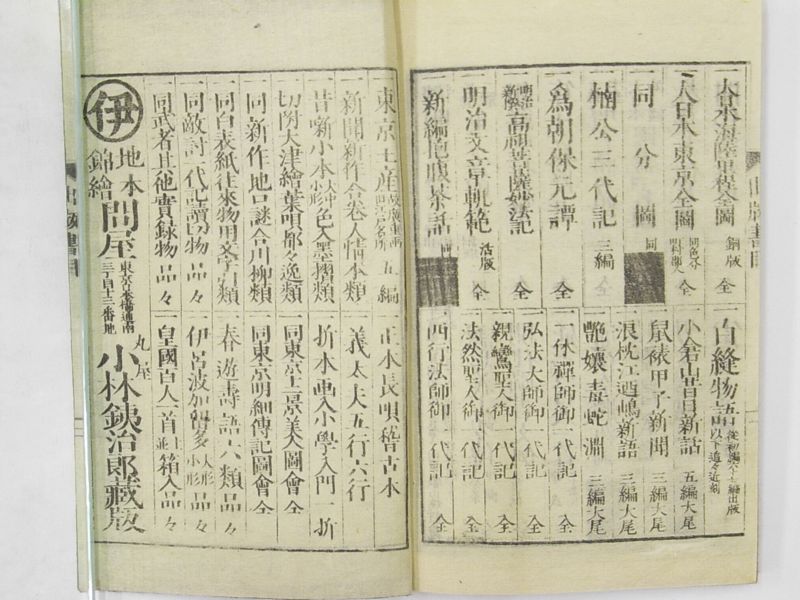 出版書目
一大日本海陸里程全圖 銅版 全
一大日本東京全圖 同色分 全
一同分圖 同
一楠公三代記 三編 全
一為朝保元譚 全
一明治新撰 高祖菩薩妙法記 全
一明治文章軌範 活版 全
一新編
白縫物語 以下追々近刻
小倉山昔日新話 五編大尾
鼠裱甲子新聞 三編大尾
浪枕江迺嶋新語 三編大尾
艶孃毒蛇淵 三編大尾
一休禪師御一代記 全
弘法大師御一代記 全
親鸞聖人御一代記 全
法然聖人御一代記 全
西行法師御一代記 全
一東京土產 五編
一新聞新作合卷人情本類
一昔噺小本 色入墨摺類
一切附大津繪葉唄都々逸類
一同新作地口謎合川柳類
一同白表紙往來物用文字引類
一同敵討一代記讀切物品々
一同武者其他實録物品々
一正本長唄稽古本
一義太夫五行六行
一折本画入小學入門一折
一同東京土景美人圖會全
一同東京明細傳記圖會全
一春遊壽語六類品々
一伊呂波加留多 大形小形 品々
一皇國百人一首 箱入品々
伊
地本
錦繪
問屋
東京日本橋通南
三丁目十三番地
丸屋
小林鉄治郎藏版
出版書目